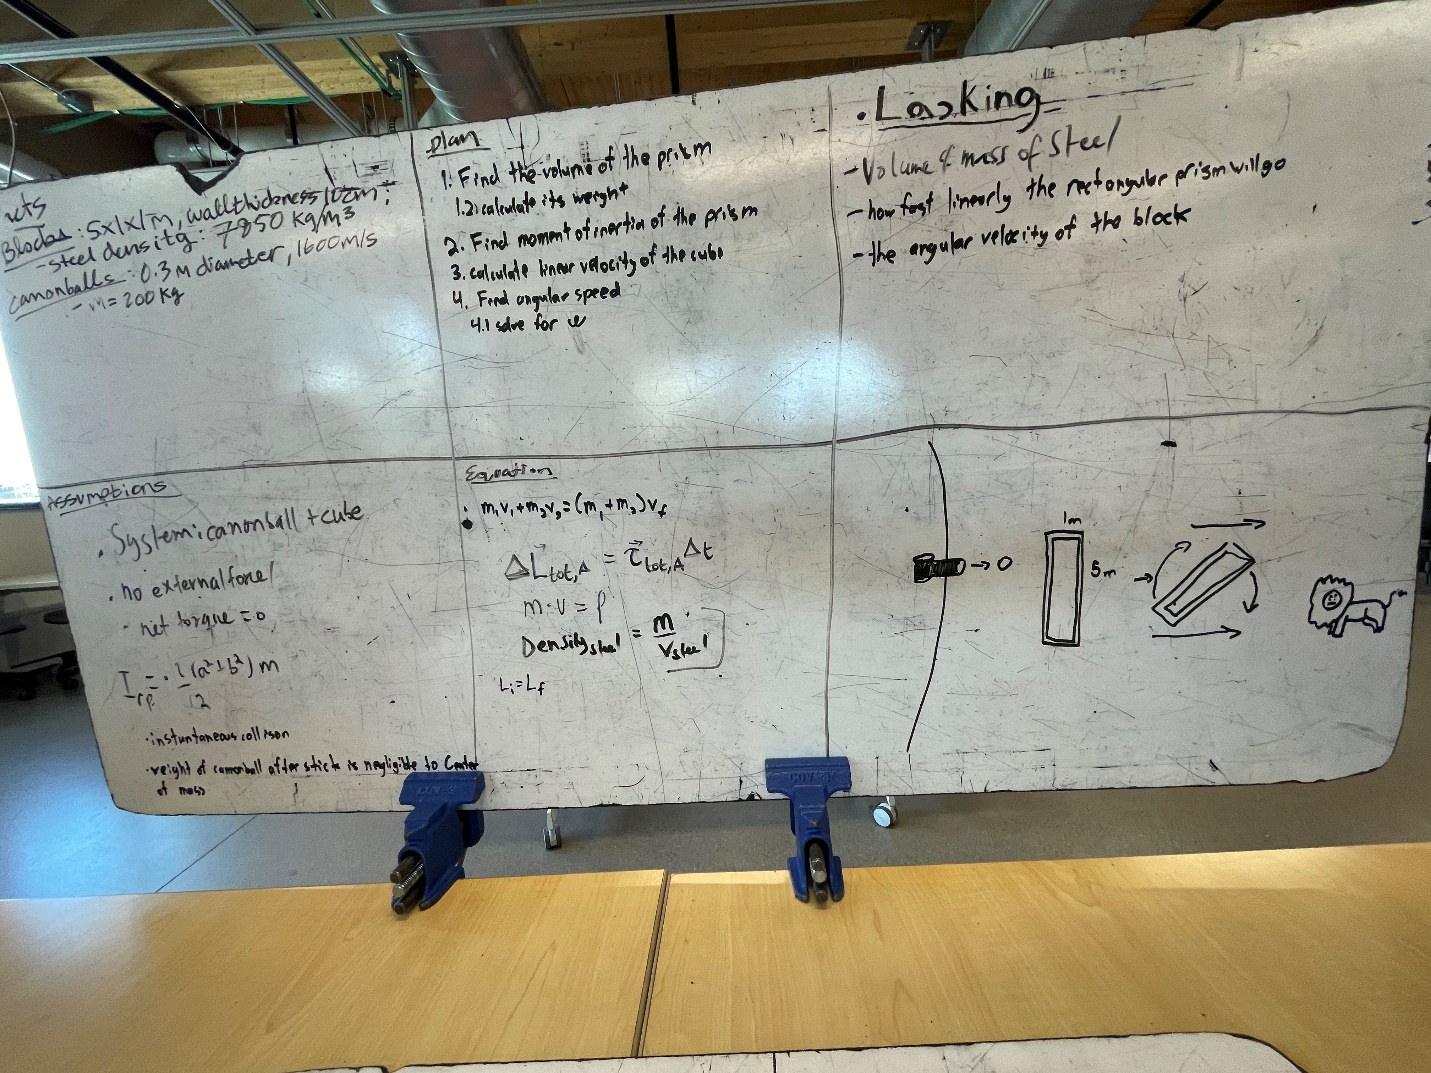 Blocks: 5x1x1m, wall thickness 10cm;
- steel density: 7850 kg/m³
canonballs: 0.3 m diameter, 1600 m/s
- m = 200 kg
plan
1. Find the volume of the prism
1.2: calculate its weight
2. Find moment of inertia of the prism
3. calculate linear velocity of the cube
4. Find angular speed
4.1 solve for ω
Lacking
- Volume & mass of steel
- how fast linearly the rectangular prism will go
- the angular velocity of the block
Assumptions
. System: canonball + cube
. no external force/
- net torque = 0
I_rp = 1/12 (a²+b²) m
· instuntaneous collison
· weight of camonball after stick is negligible to Center
of mass
Equation
· m₁v₁+m₂v₂=(m₁+m₂)v_f
ΔL⃗tot,A = τ⃗tot,A Δt
m·v = p
Density steel = m / V steel
Lᵢ=L_f
1m
5m